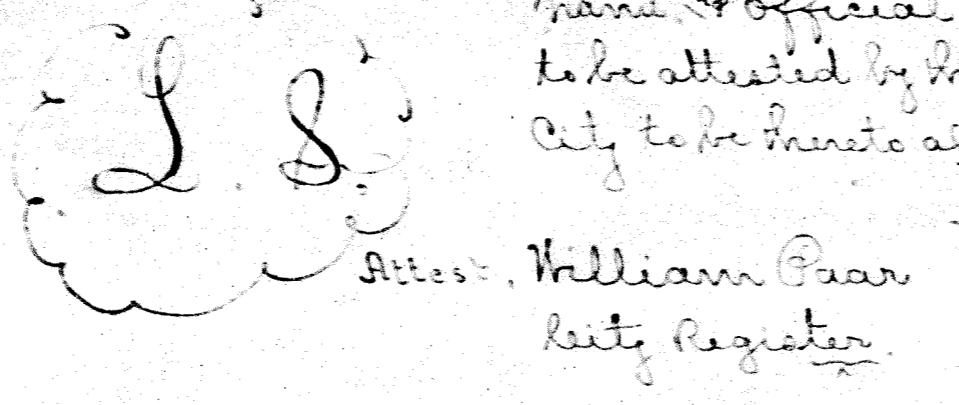 hand, & official
to be attested by th
City to be hereto a
L. S.
Attest, William Paar
City Register.